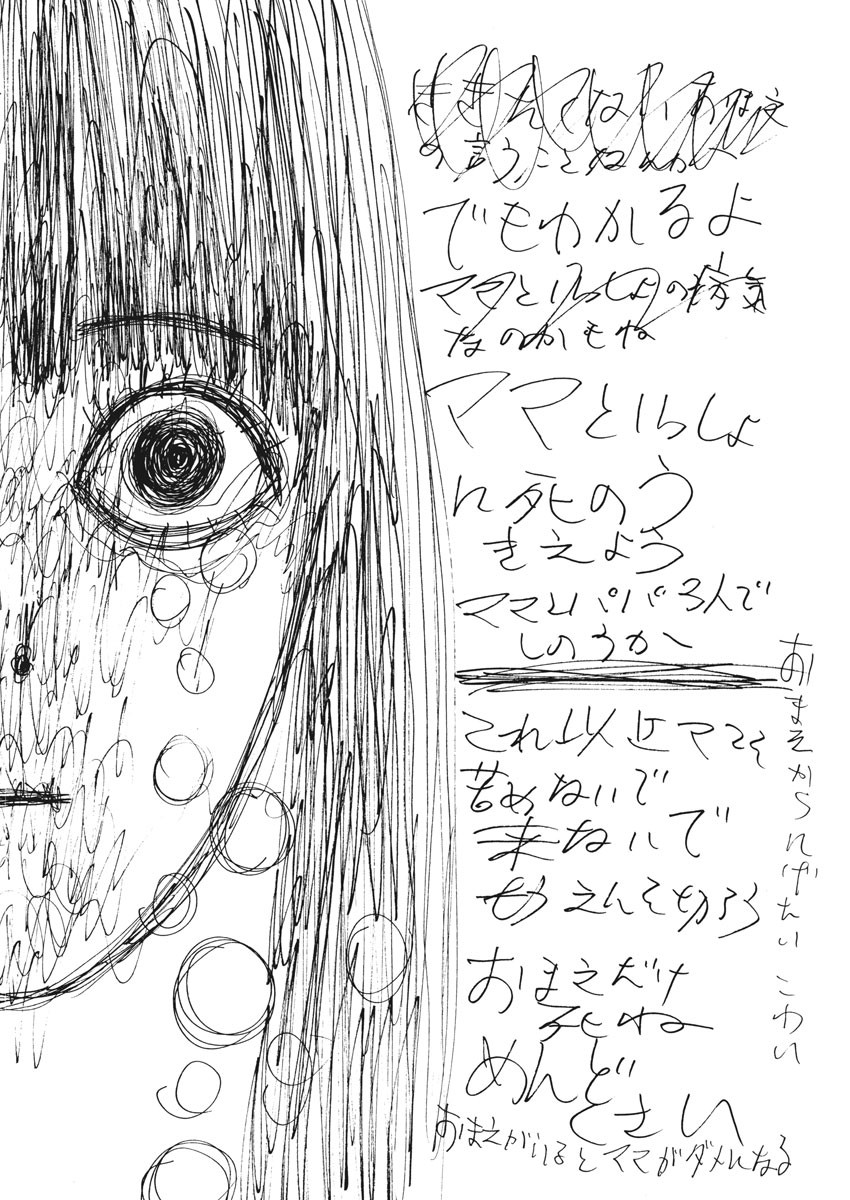 の言うことねんわー
でもわかるよ
ママといっしょの病気
なのかもね
ママといっしょ
に死のう
きえよう
ママとパパ3人で
しのうかへ
これ以上ママを
苦めないで
来ないで
もうえんを切ろう
おまえだけ
死ね
めんど
くさい
おまえがいるとママがダメになる
おまえからにげたい こわい